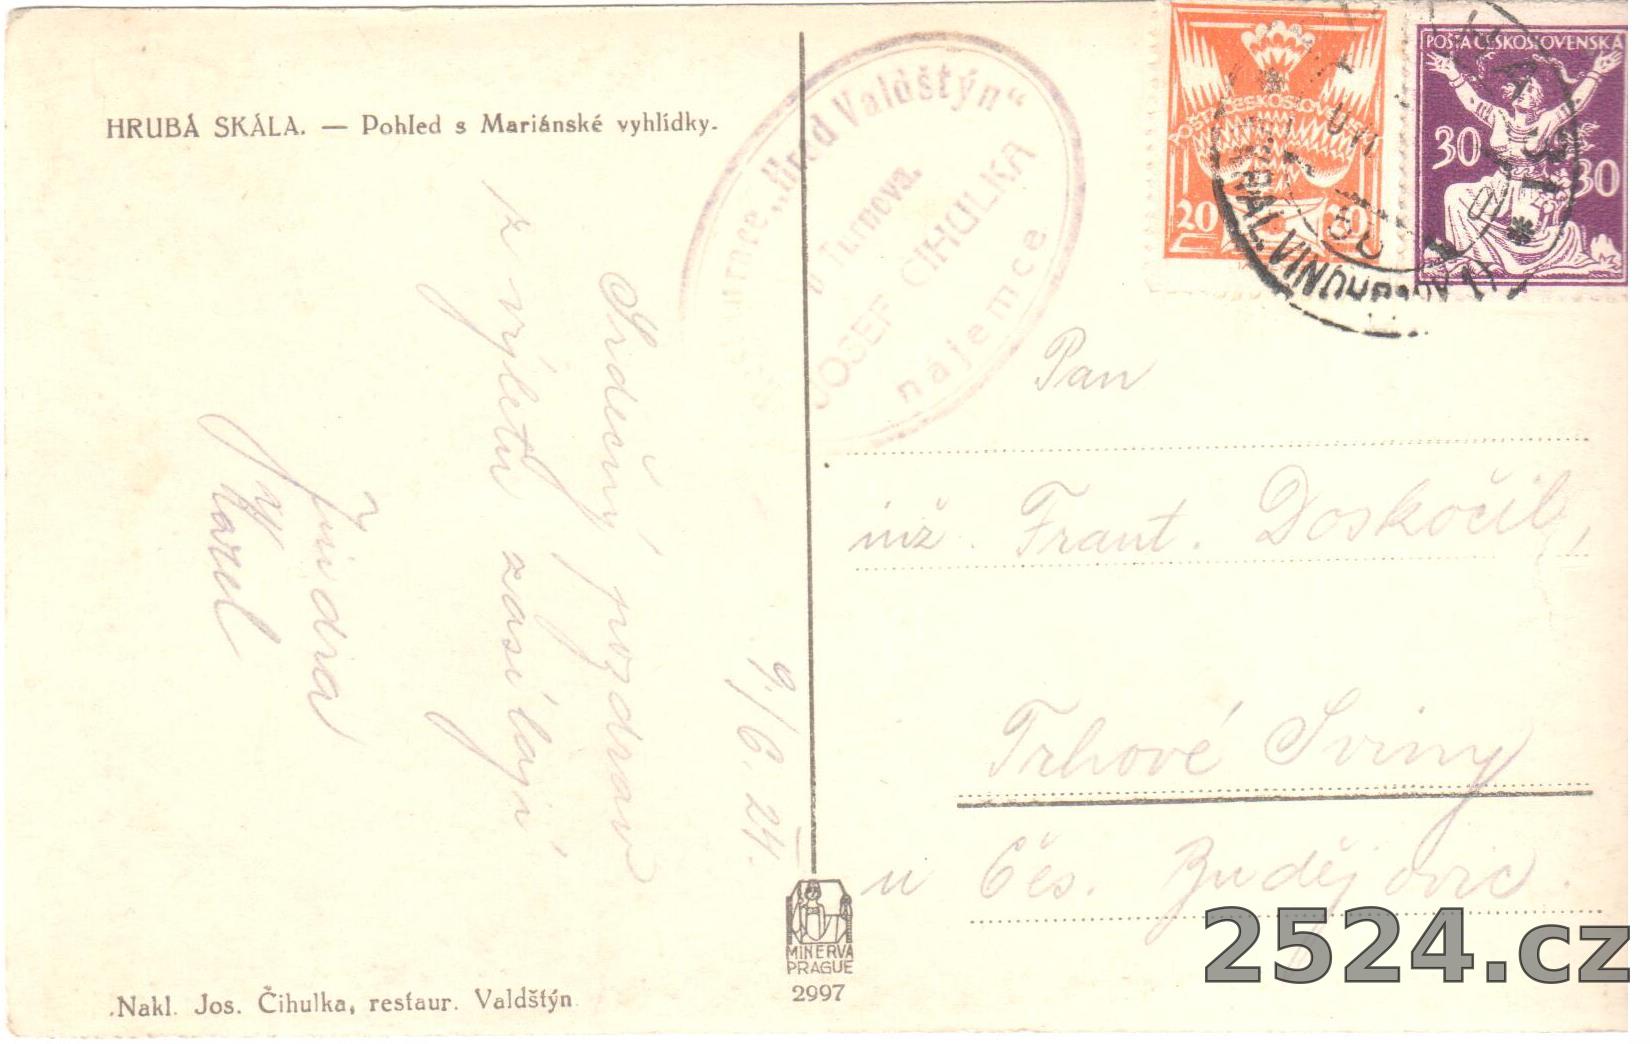 HRUBÁ SKÁLA. — Pohled s Mariánské vyhlídky.
9./6. 24.
Srdečný pozdrav
z výletu zasílají
Jindra
Karel
"Hrad Valdštýn"
u Turnova.
JOSEF ČIHULKA
nájemce
POŠTA ČESKOSLOVENSKÁ
20 20
POŠTA ČESKOSLOVENSKÁ
30 30
KRÁL. VINOHRADY
Pan
inž. Frant. Doskočil,
Trhové Sviny
u Čes. Budějovic.
MINERVA
PRAGUE
2997
Nakl. Jos. Čihulka, restaur. Valdštýn
2524.cz